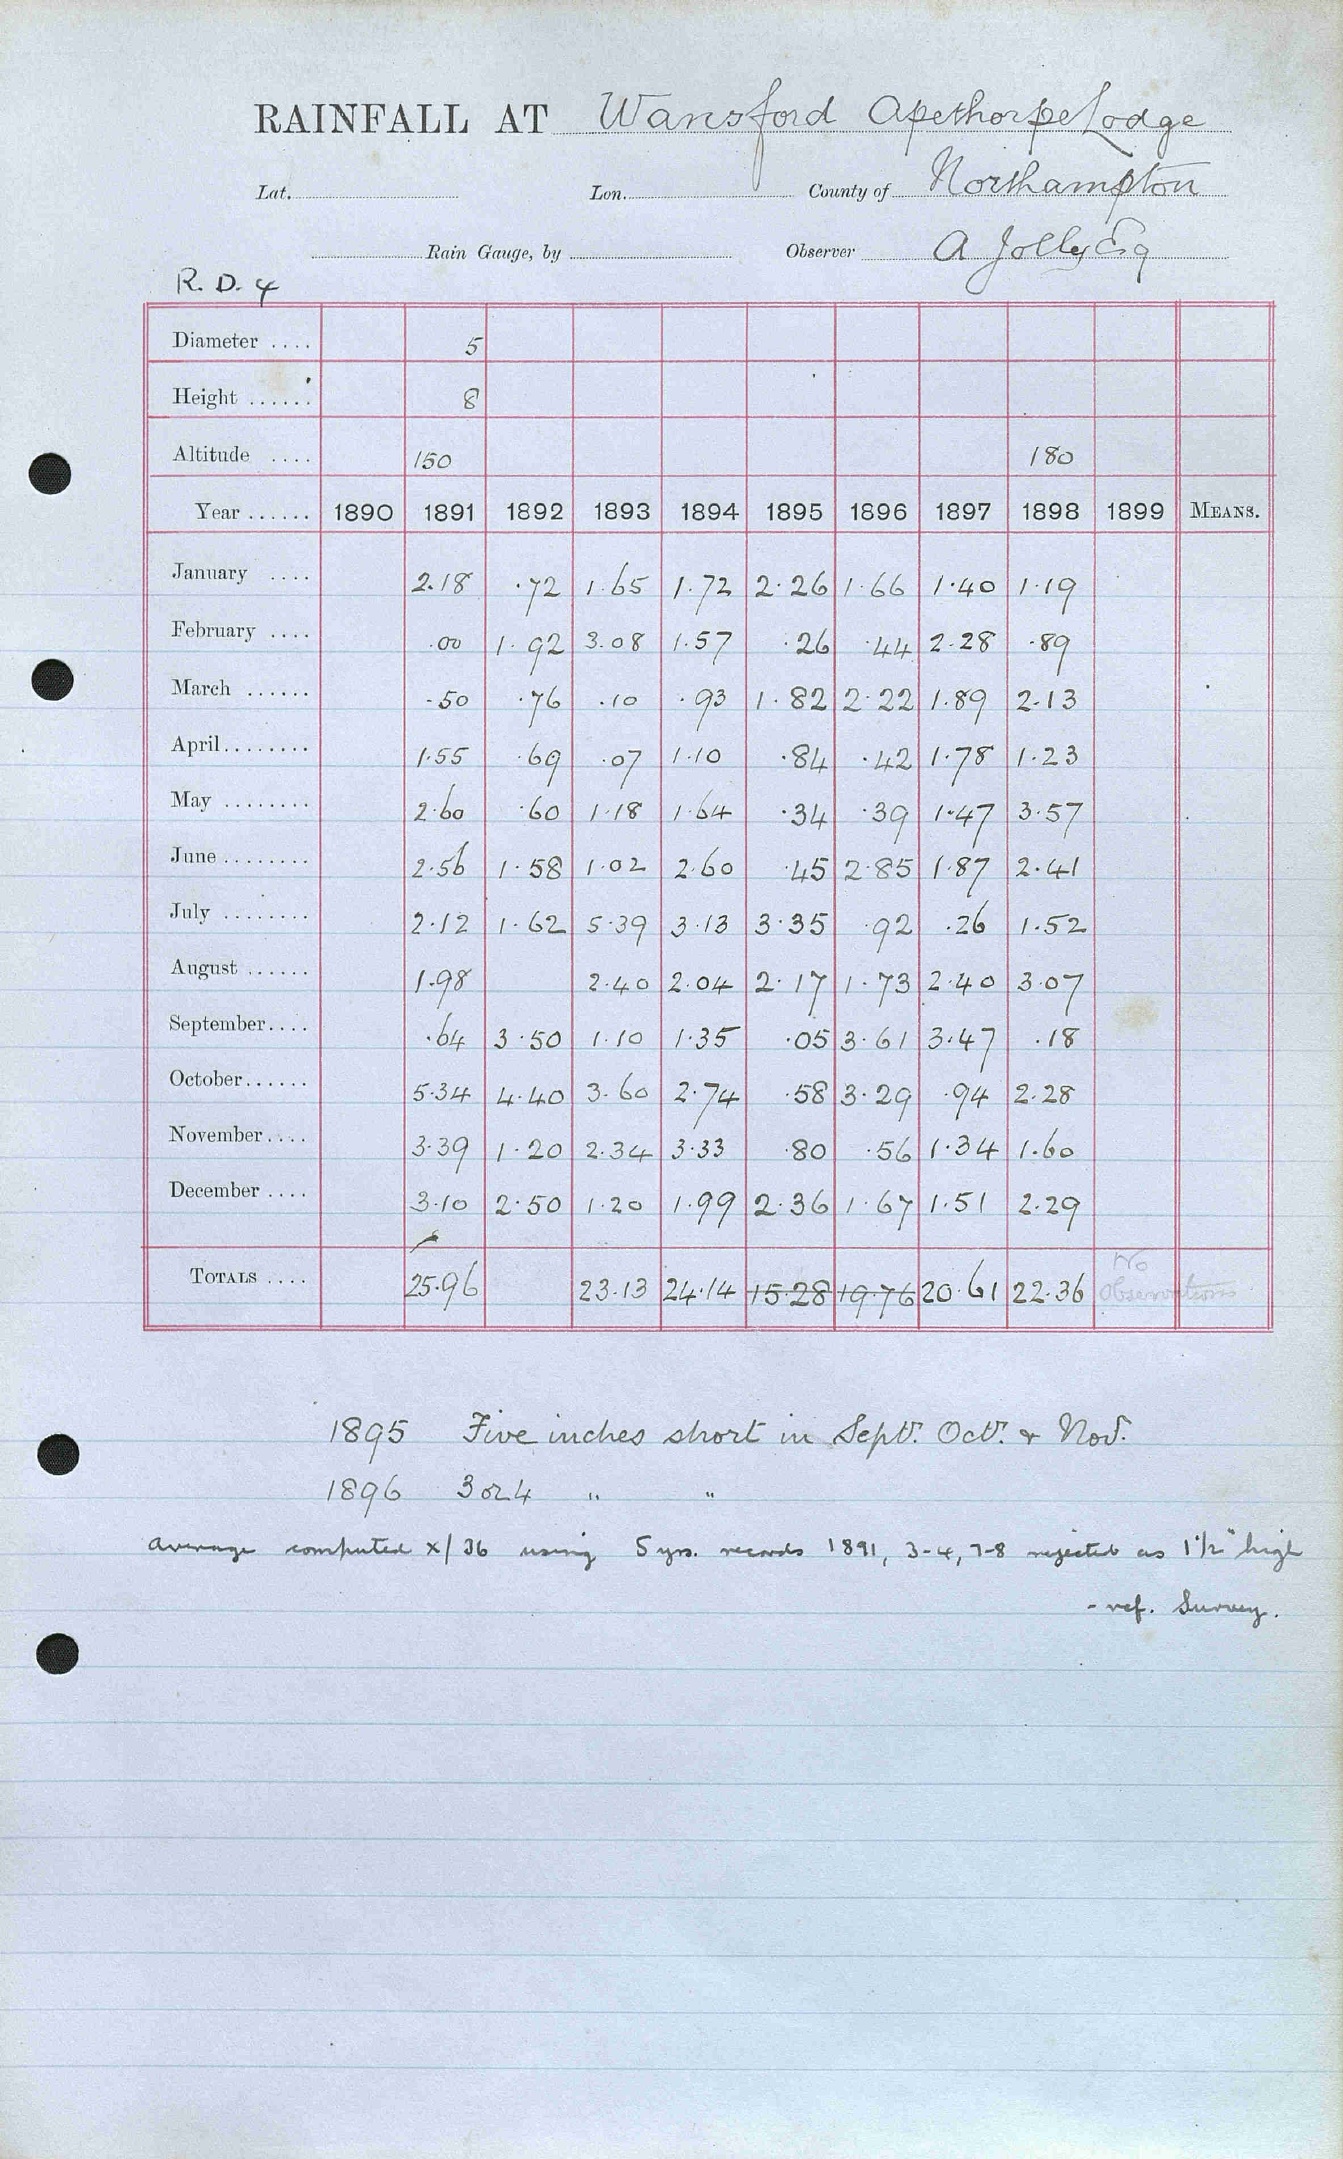 RAINFALL AT Wansford Apethorpe Lodge
Lat. Lon. County of Northampton
Rain Gauge, by Observer A Jolley Esq
R. D. 4
Diameter .... 5
Height ...... 8
Altitude .... 150 180
Year ...... 1890 1891 1892 1893 1894 1895 1896 1897 1898 1899 MEANS.
January .... 2.18 .72 1.65 1.72 2.26 1.66 1.40 1.19
February .... .00 1.92 3.08 1.57 .26 .44 2.28 .89
March ...... .50 .76 .10 .93 1.82 2.22 1.89 2.13
April........ 1.55 .69 .07 1.10 .84 .42 1.78 1.23
May ........ 2.60 .60 1.18 1.64 .34 .39 1.47 3.57
June ........ 2.56 1.58 1.02 2.60 .45 2.85 1.87 2.41
July ........ 2.12 1.62 5.39 3.13 3.35 .92 .26 1.52
August ...... 1.98 2.40 2.04 2.17 1.73 2.40 3.07
September.... .64 3.50 1.10 1.35 .05 3.61 3.47 .18
October...... 5.34 4.40 3.60 2.74 .58 3.29 .94 2.28
November.... 3.39 1.20 2.34 3.33 .80 .56 1.34 1.60
December .... 3.10 2.50 1.20 1.99 2.36 1.67 1.51 2.29
TOTALS .... 25.96 23.13 24.14 15.28 19.76 20.61 22.36 No Observations
1895 Five inches short in Sept. Oct. & Nov.
1896 3 or 4 " "
Average computed x/36 using 5 yrs. records 1891, 3-4, 7-8 rejected as 1½" high
- ref. Survey.